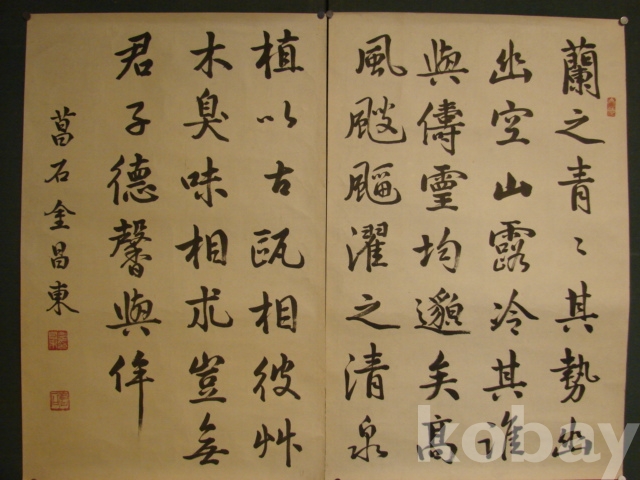 蘭之青〻其勢幽
幽空山露冷其誰
與儔靈均邈矣高
風颼飀濯之清泉
植以古甌相彼艸
木臭味相求豈無
君子德馨與侔
菖石金昌東
kobay